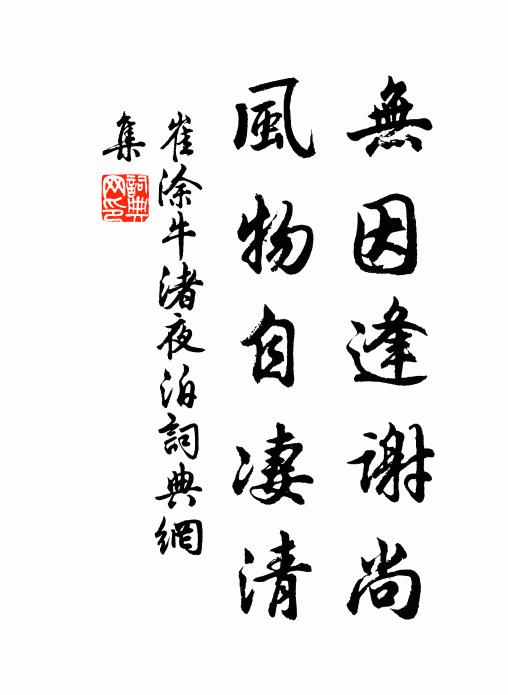 無因逢謝尚
風物自凄清
崔涂牛渚夜泊詞典網
集
詞典
网印